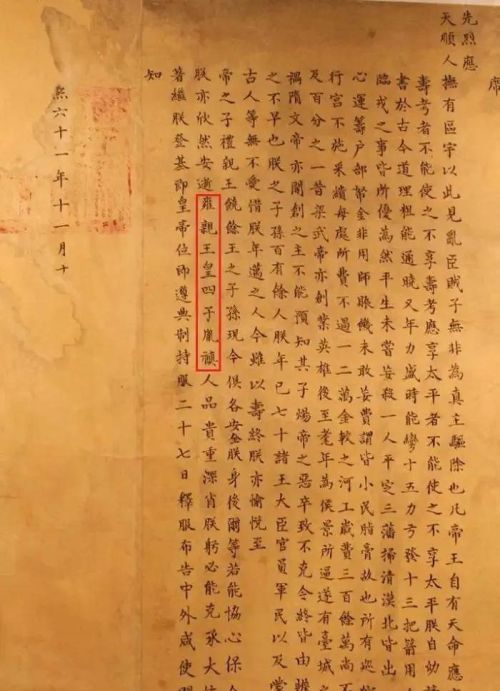 席
先烈應
天順人撫有區宇以此見亂臣賊子無非為真主驅除也凡帝王自有天命應
壽考者不能使之不享壽考應享太平者不能使之不享太平朕自幼
書於古今道理粗能通曉又年力盛時能彎十五力弓發十三把箭用
臨戎之事皆所優為然平生未嘗妄殺一人平定三藩掃清漠北皆出
心運籌户部帑金非用師賑饑未敢妄費謂皆小民脂膏故也所有巡
行宮不施采繢每處所費不過一二萬金較之河工歲費三百餘萬尚不
及百分之一昔梁武帝亦創業英雄後至耄年為侯景所逼遂有臺城之
禍隋文帝亦開創之主不能預知其子煬帝之惡卒致不克令終皆由辨
之不早也朕之子孫百有餘人朕年已七十諸王大臣官員軍民以及
古人等無不愛惜朕年邁之人今雖以壽終朕亦愉悅至
帝之子禮親王饒餘王之子孫現今俱各安全朕身後爾等若能協心保全
朕亦欣然安逝雍親王皇四子胤禛人品貴重深肖朕躬必能克承大
著繼朕登基即皇帝位即遵典制持服二十七日釋服布告中外咸使
知
熙六十一年十一月十